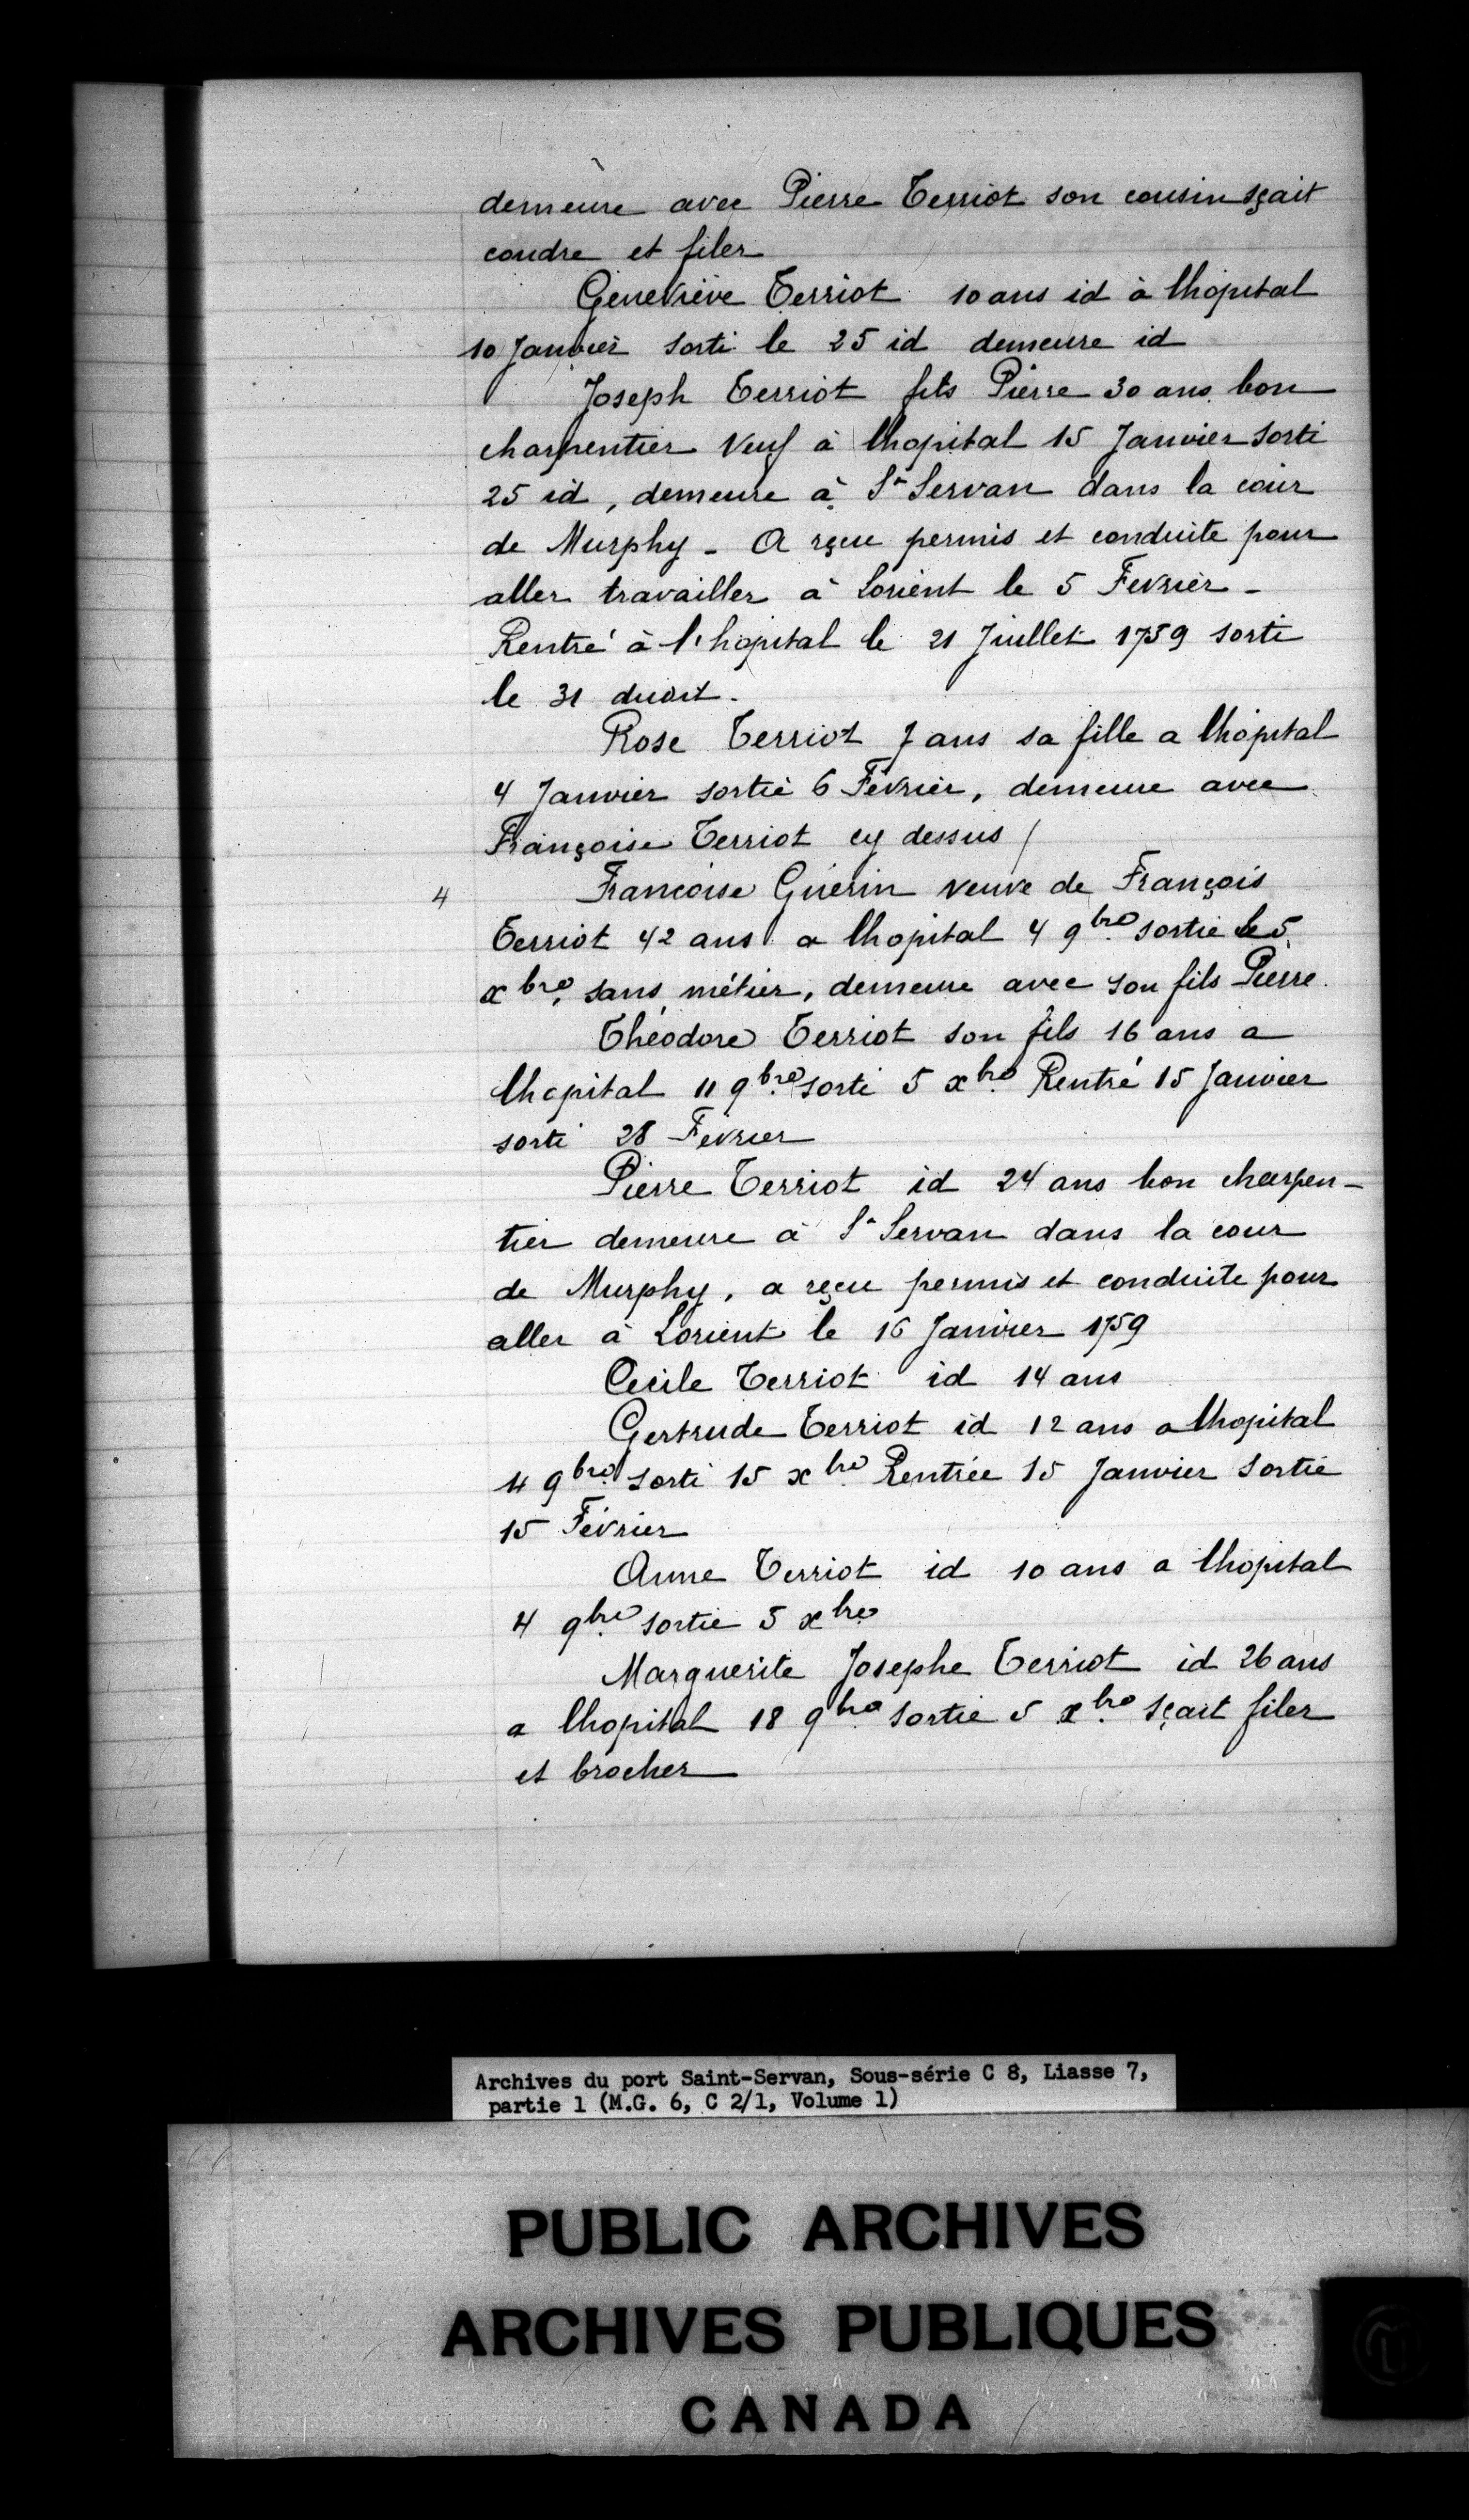 demeure avec Pierre Terriot son cousin sçait
coudre et filer
Geneviève Terriot 10 ans id à lhopital
10 Janvier sorti le 25 id demeure id
Joseph Terriot fils Pierre 30 ans bon
charpentier Veuf à lhopital 15 Janvier sorti
25 id, demeure à St Servan dans la cour
de Murphy - A reçu permis et conduite pour
aller travailler à Lorient le 5 Fevrier -
Rentré à l'hopital le 21 Juillet 1759 sorti
le 31 duoit.
Rose Terriot 7 ans sa fille a lhopital
4 Janvier sortie 6 Février, demeure avec
Françoise Terriot cy dessus /
4 Francoise Guérin veuve de François
Terriot 42 ans a lhopital 4 9bre sortie le 5
xbre sans métier, demeure avec son fils Pierre.
Théodore Terriot son fils 16 ans a
lhopital 11 9bre sorti 5 xbre Rentré 15 Janvier
sorti 28 Février
Pierre Terriot id 24 ans bon charpen-
tier demeure à St Servan dans la cour
de Murphy, a reçu permis et conduite pour
aller à Lorient le 16 Janvier 1759
Cecile Terriot id 14 ans
Gertrude Terriot id 12 ans a lhopital
4 9bre sorti 15 xbre Rentrée 15 Janvier sortie
15 Février
Anne Terriot id 10 ans a lhopital
4 9bre sortie 5 xbre
Marguerite Josephe Terriot id 26 ans
a lhopital 18 9bre sortie 5 xbre sçait filer
et brocher
Archives du port Saint-Servan, Sous-série C 8, Liasse 7,
partie 1 (M.G. 6, C 2/1, Volume 1)
PUBLIC ARCHIVES
ARCHIVES PUBLIQUES
CANADA